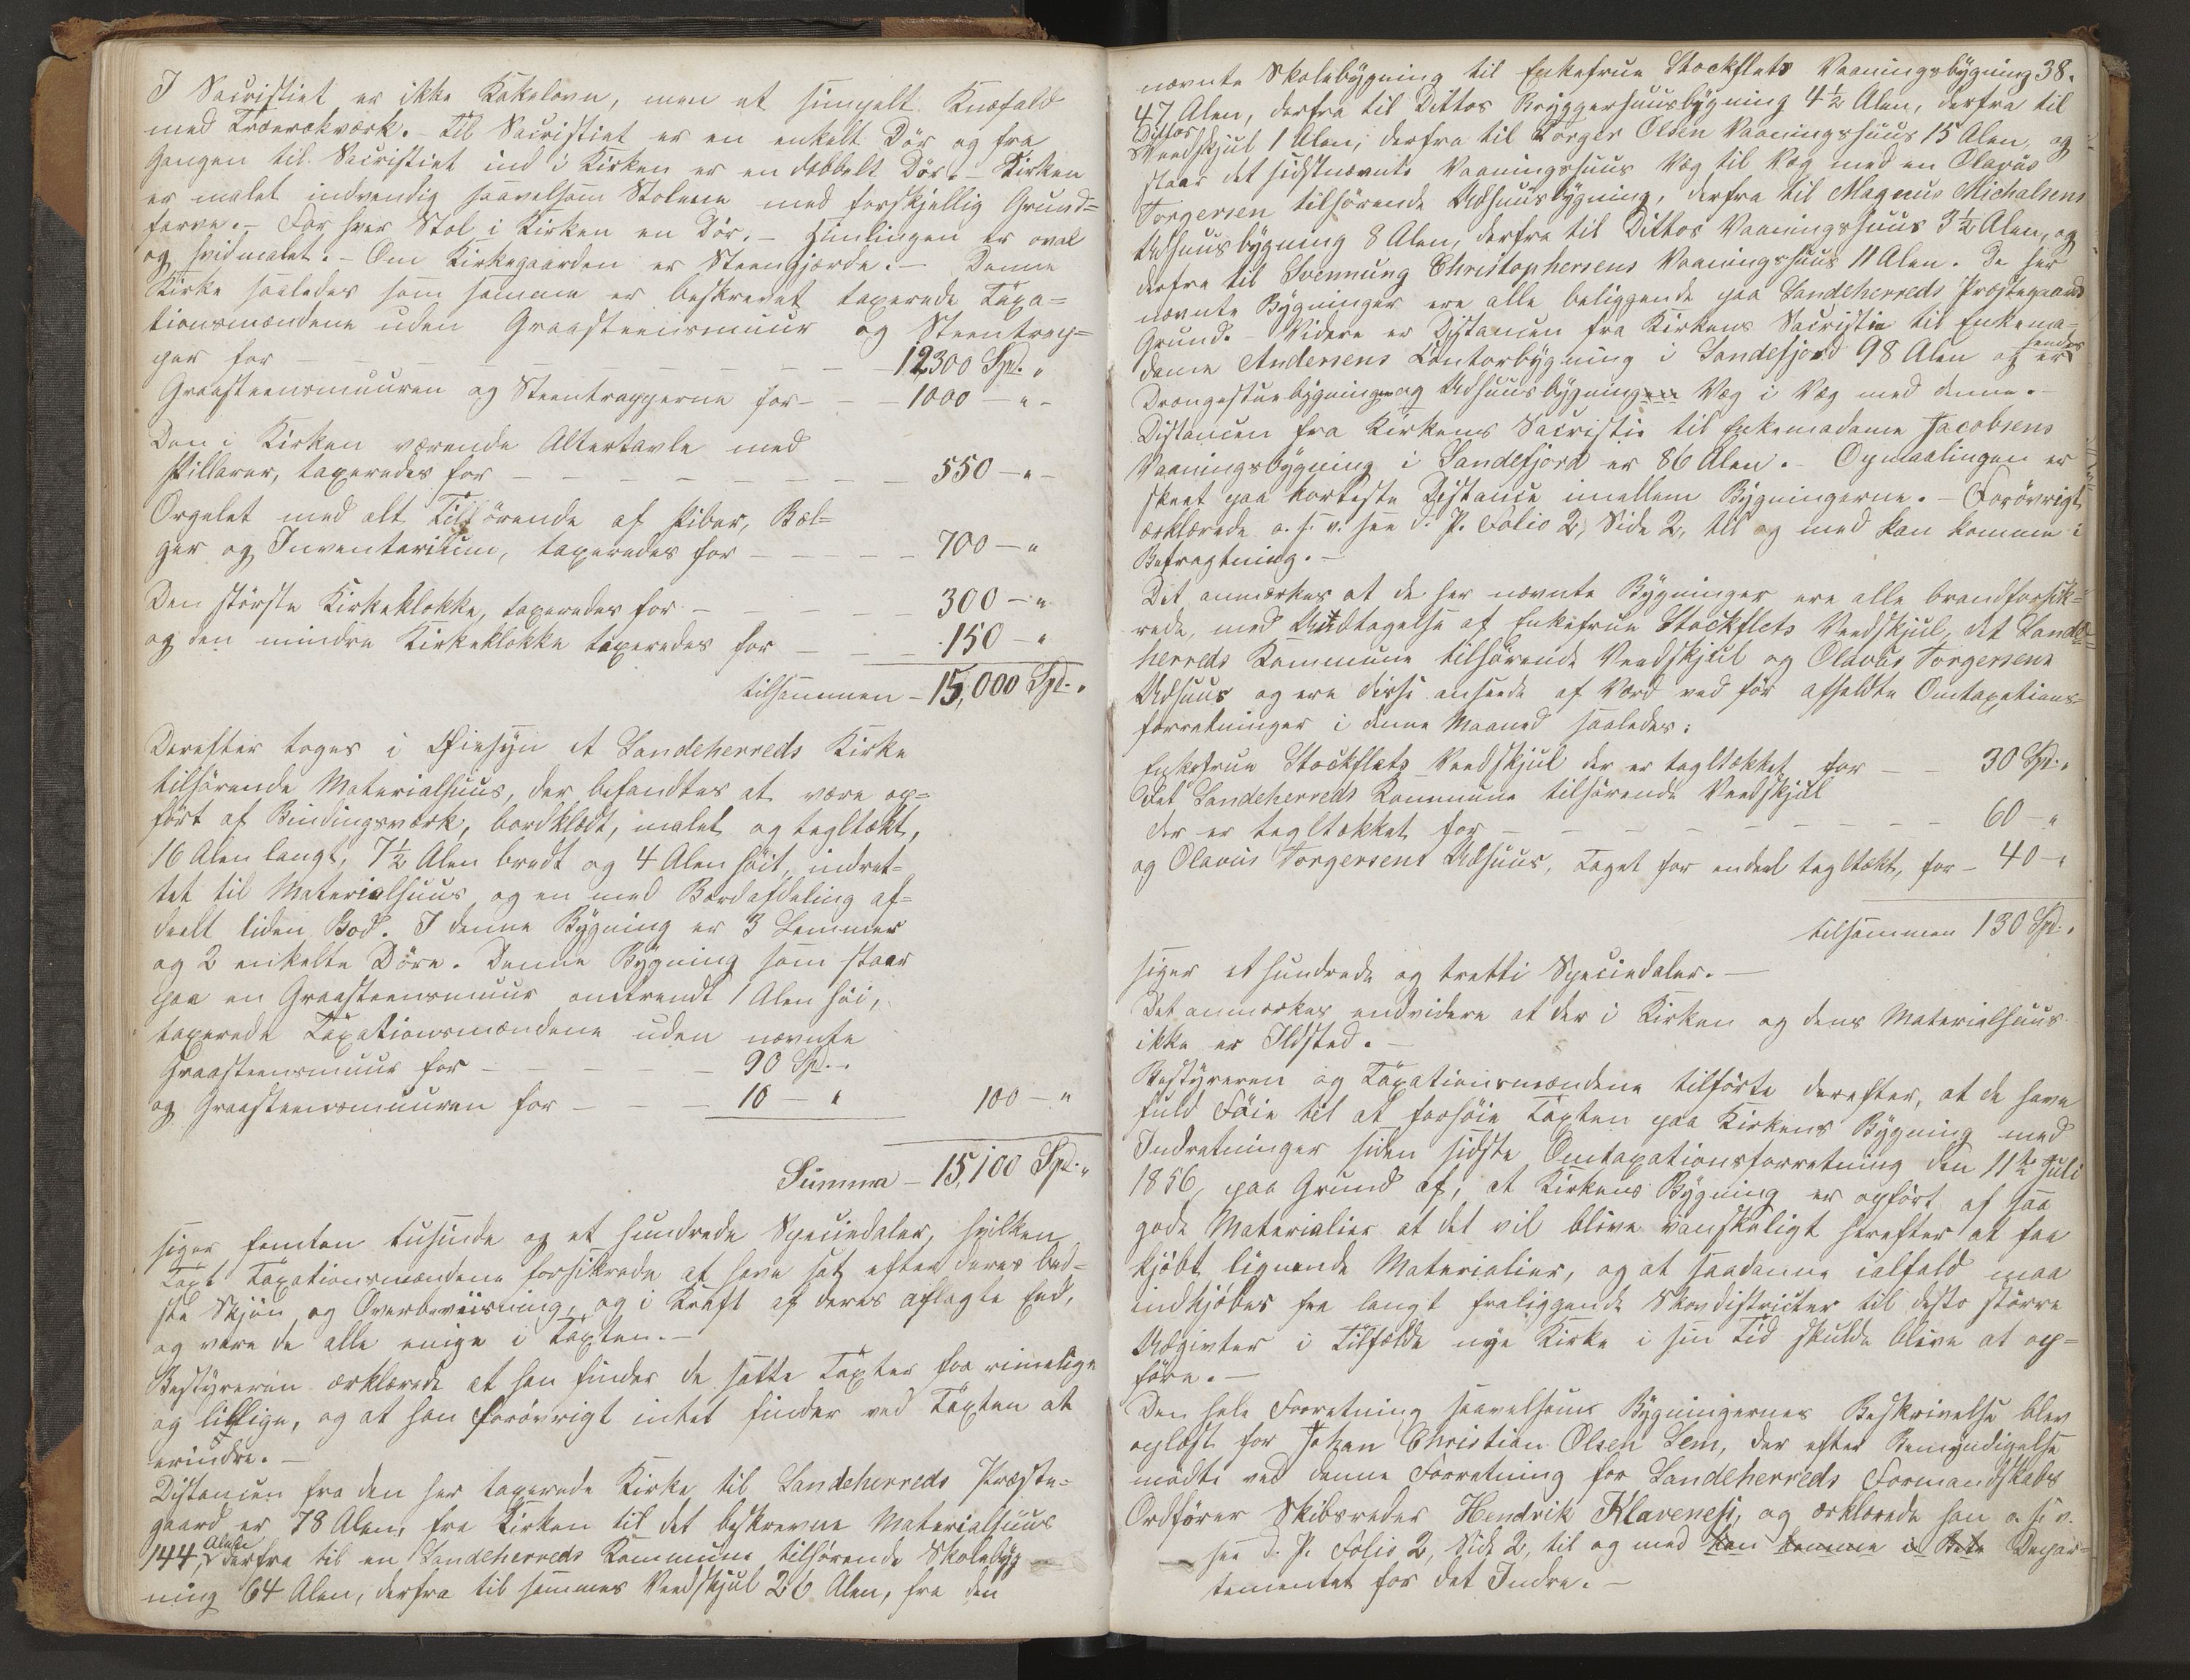 I Sacristiet er ikke Kakelovn, men et simpelt Knæfald
med Træværkværk. - Til Sacristiet er en enkelt Dör og fra
Gangen til Sacristiet ind i Kirken er en dobbelt Dör. - Kirken
er malet indvendig saavelsom Stolene med forskjellig Grund=
farve. - For hver Stol i Kirken en Dör. - Himlingen er oval
og hvidmalet. - Om Kirkegaarden er Steengjærde. - Denne
Kirke saaledes som samme er beskrevet taxerede Taxa=
tionsmændene uden Graasteensmuur og Steentrap=
per for - - - - - - - - 12300 Spd. "
Graasteensmuuren og Steentrapperne for - - - 1000 - " -
Den i Kirken værende Altertavle med
Pillarer, taxeredes for - - - - - - - 550 - " -
Orgelet med alt Tilhörende af Piber, Bæl=
ger og Inventarium, taxeredes for - - - - 700 - "
Den störste Kirkeklokke, taxeredes for - - - - 300 - "
og den mindre Kirkeklokke taxeredes for - - - 150 - "
tilsammen - 15,000 Spd. "
Derefter toges i Öiesyn et Sandeherreds Kirke
tilhörende Materialhuus, der befandtes at være op=
fört af Bindingsværk, bordklædt, malet og tegltækt,
16 Alen langt, 7½ Alen bredt og 4 Alen höit, indret=
tet til Materialhuus og en med Bordafdeling af=
deelt liden Bod. I denne Bygning er 3 Lemmer
og 2 enkelte Döre. Denne Bygning som staar
paa en Graasteensmuur omtrendt 1 Alen höi,
taxerede Taxationsmændene uden nævnte
Graasteensmuur for - - - - - 90 Spd. "
og Graasteensmuuren for - - - 10 - " 100 - "
Summa - 15,100 Spd. "
siger femten tusinde og et hundrede Speciedaler, hvilken
Taxt Taxationsmændene forsikrede at have sat efter deres bed=
ste Skjön og Overbeviisning, og i Kraft af deres aflagte Eed,
og vare de alle enige i Taxten. -
Bestyreren erklærede at han finder de satte Taxter for rimelige
og billige, og at han forövrigt intet finder ved Taxten at
erindre. -
Distancen fra den her taxerede Kirke til Sandeherreds Præste=
gaard er 78 Alen, fra Kirken til det beskrevne Materialhuus
144 Alen, derfra til en Sandeherreds Kommune tilhörende Skolebyg=
ning 64 Alen, derfra til sammes Vedskjul 26 Alen, fra den
38.
nævnte Skolebygning til Enkefrue Stockflets Vaaningsbygning
47 Alen, derfra til Dittos Bryggerhuusbygning 4½ Alen, derfra til
Dittos
Veedskjul 1 Alen, derfra til Törger Olsen Vaaningshuus 15 Alen, og
staar det sidstnævnte Vaaningshuus Væg til Væg med en Olavus
Torgersen tilhörende Udhuusbygning, derfra til Magnus Michalsens
Udhuusbygning 8 Alen, derfra til Dittos Vaaningshuus 3½ Alen, og
derfra til Svennung Christophersens Vaaningshuus 11 Alen. De her
nævnte Bygninger ere alle beliggende paa Sandeherreds Præstegaards
Grund. - Videre er Distancen fra Kirkens Sacristie til Enkema=
dame Andersens Contorbygning i Sandefjord 98 Alen og er sendes
Drengestuebygningen og Udhuusbygningen Væg i Væg med denne. -
Distancen fra Kirkens Sacristie til Enkemadame Jacobsens
Vaaningsbygning i Sandefjord er 86 Alen. - Opmaalingen er
skeet paa korteste Distance imellem Bygningerne. - Forövrigt
erklærede o. s. v. see d. P. Folio 2, Side 2, til og med kan komme i
Betragtning. -
Det anmærkes at de her nævnte Bygninger ere alle brandforsik=
rede, med Undtagelse af Enkefrue Stockflets Veedskjul, det Sande=
herreds Kommune tilhörende Veedskjul og Olavus Torgersens
Udhuus og ere disse ansaaede af Værd ved för afholdte Omtaxations=
forretninger i denne Maaned saaledes:
Enkefrue Stockflets Veedskjul der er tegltækket for - - 30 Spd. "
Det Sandeherreds Kommune tilhörende Veedskjul
der er tegltækket for - - - - - - - - 60 - "
og Olavus Torgersens Udhuus, Taget for endeel tegltækt, for - 40 - "
tilsammen 130 Spd. "
siger et hundrede og tretti Speciedaler. -
Det anmærkes endvidere at der i Kirken og dens Materialhuus
ikke er Ildsted. -
Bestyreren og Taxationsmændene tilförte derefter, at de have
fuld Föie til at forhöie Taxten paa Kirkens Bygning med
Indretninger siden sidste Omtaxationsforretning den 11te Juli
1856, paa Grund af, at Kirkens Bygning er opfört af saa
gode Materialier at det vil blive vanskeligt herefter at faa
kjöbt lignende Materialier, og at saadanne ialfald maa
indkjöbes fra langt fraliggende Skovdistricter til desto större
Udgivter i Tilfælde nye Kirke i sin Tid skulde blive at op=
före. -
Den hele Forretning saavelsom Bygningernes Beskrivelse blev
oplæst for Johan Christian Olsen Lem, der efter Bemyndigelse
mödte ved denne Forretning for Sandeherreds Formandskabs
Ordförer Skibsreder Hendrik Klavenes, og erklærede han o. s. v.
see d. P. Folio 2, Side 2, til og med kan komme i Betr Depar=
tementet for det Indre. -